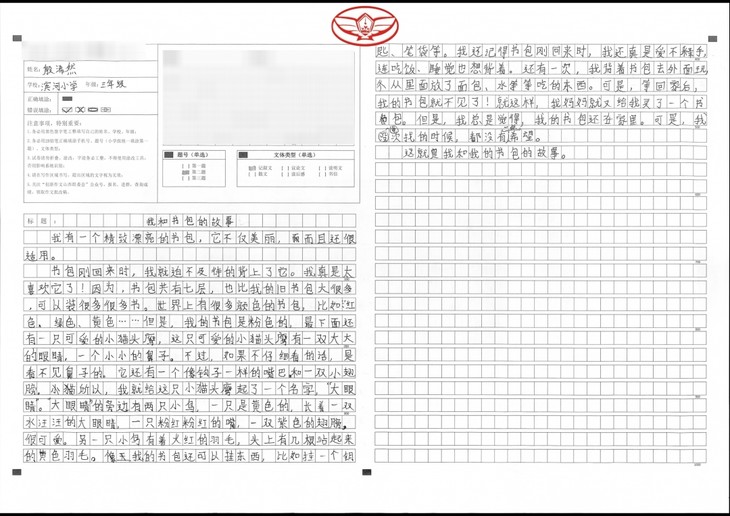 姓名：
学校：滨河小学 年级：三年级
正确填涂：
错误填涂：
注意事项，特别重要：
题号（单选）
第一题
第二题
第三题
文体类型（单选）
记叙文
议论文
说明文
散文
读后感
书信
标题：我和书包的故事
我有一个精致漂亮的书包，它不仅美丽，而且还很
适用。
书包刚回来时，我就迫不及待的背上了它。我真是太
喜欢它了！因为，书包共有七层，也比我的旧书包大很多
，可以装很多很多书。世界上有很多颜色的书包，比如红
色、绿色、黄色……但是，我的书包是粉色的，最下面还
有一只可爱的小猫头鹰，这只可爱的小猫头鹰有一双大大
的眼睛，一个小小的鼻子。不过，如果不仔细看的话，是
看不见鼻子的。它还有一个像钩子一样的嘴巴和一双小翅
膀。所以，我就给这只小猫头鹰起了一个名字，“大眼
睛”。“大眼睛”的旁边有两只小鸟，一只是黄色的，长着一双
水汪汪的大眼睛，一只粉红粉红的嘴，一双紫色的翅膀，
很可爱。另一只小鸟有着火红的羽毛，头上有几根站起来
的黄色羽毛。我的书包还可以挂东西，比如挂一个钥
匙、笔袋等。我还记得书包刚回来时，我还真是爱不释手，
连吃饭、睡觉也想背着。还有一次，我背着书包去外面玩，
里面放了面包、水果等吃的东西。可是，等回家后，
我的书包就不见了！就这样，我妈妈就又给我买了一个书
包。但是，我总是觉得，我的书包还在家里。可是，我
找的时候，都没有希望。
这就是我和我的书包的故事。